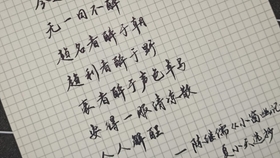 无一日不醉
趋名者醉于朝
趋利者醉于野
豪者醉于声色车马
安得一服清凉散
人人解酲
—陈继儒《小窗幽记